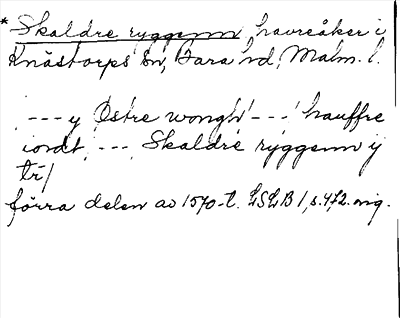 * Skaldre ryggenn, havreåker i
Knästorps sn, Bara hd, Malm. l.
--- y Östre wongh --- hauffre
iordt --- Skaldre ryggenn ij
tr/
förra delen av 1570-t. LSLB 1, s. 472. orig.